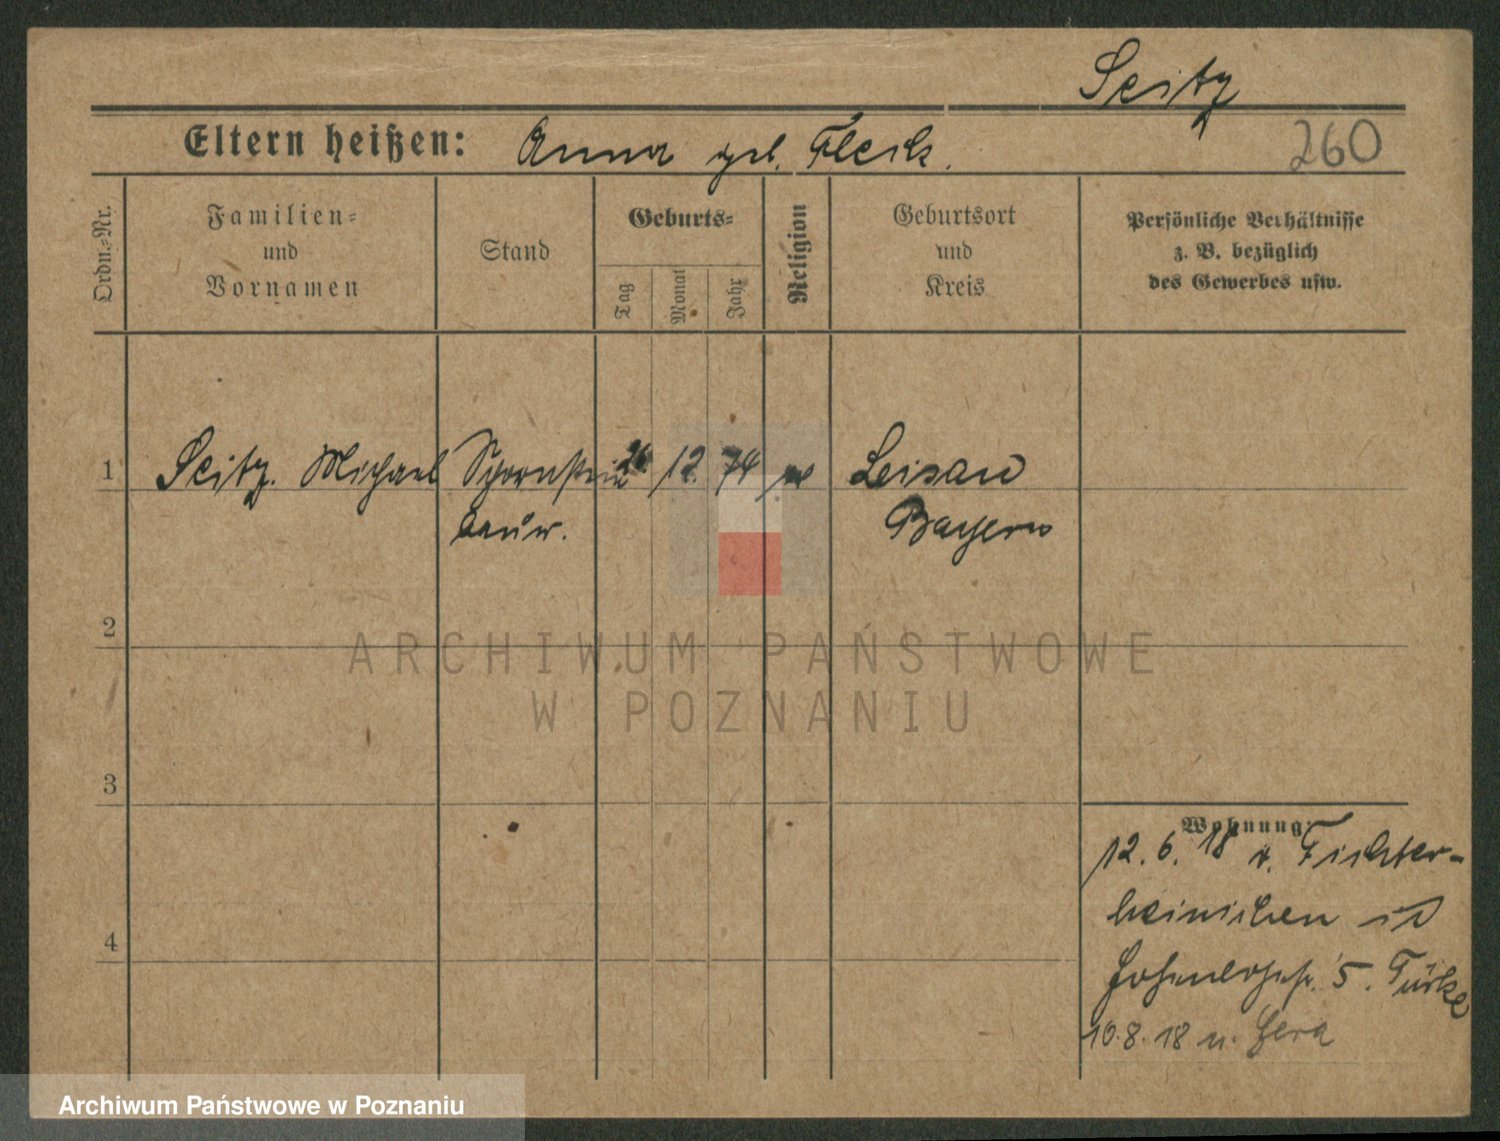 Seitz
Eltern heißen: Anna geb. Fleck.
260
Ordn.-Nr.
Familien-
und
Vornamen
Stand
Geburts-
Tag
Monat
Jahr
Religion
Geburtsort
und
Kreis
Persönliche Verhältnisse
z. B. bezüglich
des Gewerbes usw.
1 Seitz. Michael Schornstein 26 12. 74 Leisau
bauw. Bayern
2
3
4
Wohnung:
12. 6. 18 v. Fichter-
heinichen
5. Türke
10. 8. 18 n. Gera
ARCHIWUM PAŃSTWOWE
W POZNANIU
Archiwum Państwowe w Poznaniu